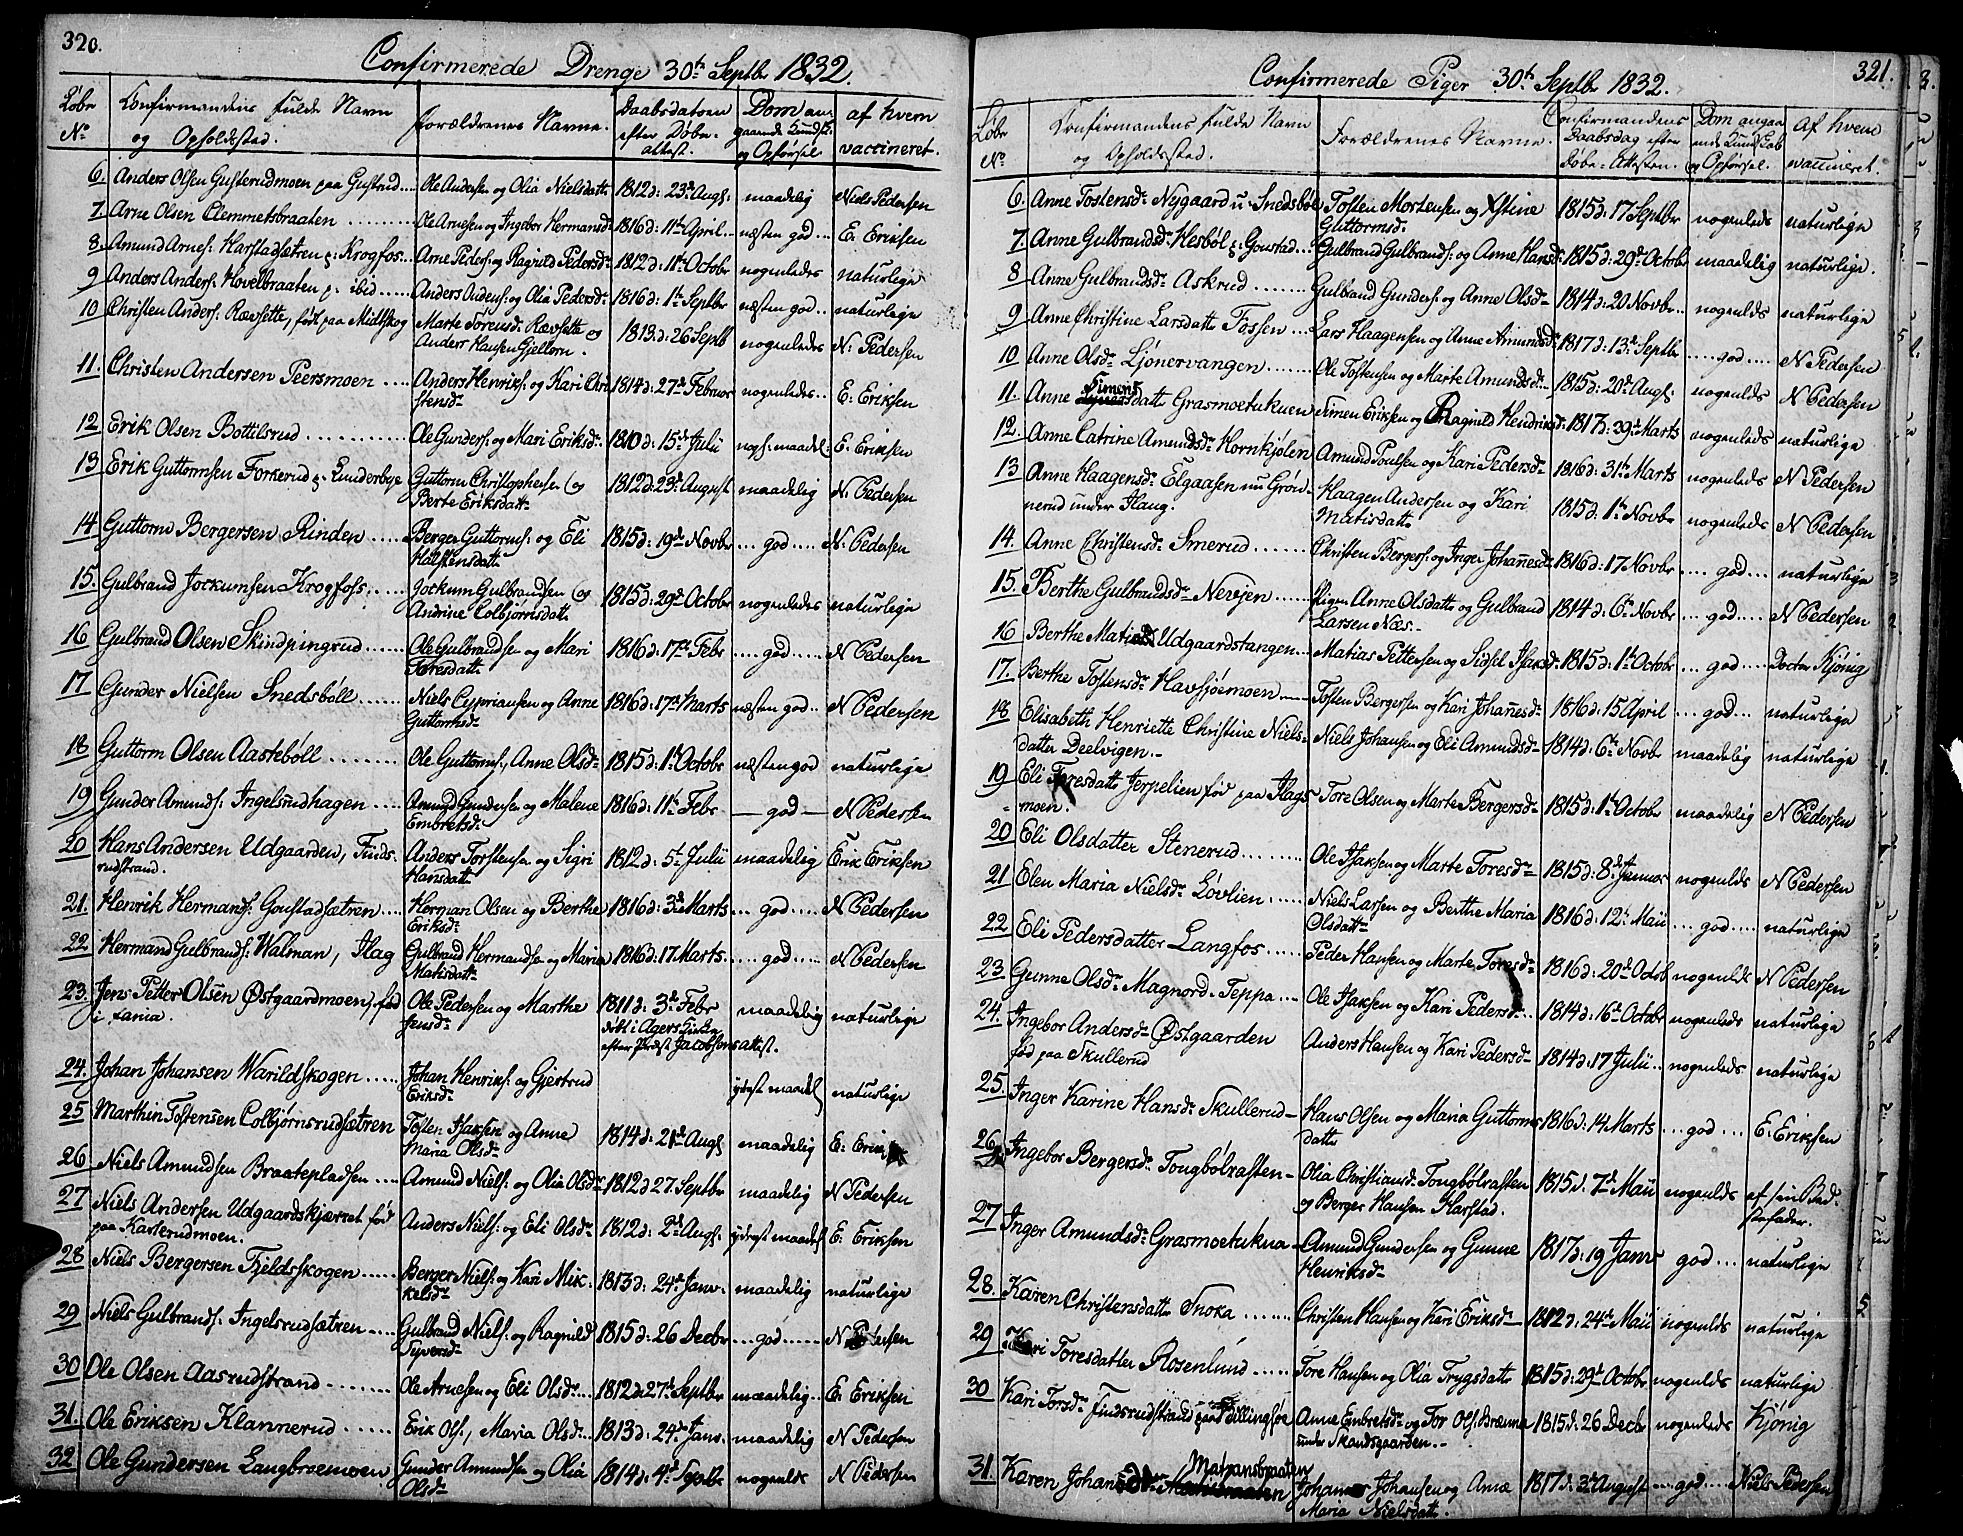 320.
Confirmerede Drenge 30te Septbr 1832.
Løbe No
Confirmandens fulde Navn og Opholdsstad.
Forældrenes Navne.
Daabsdatoen efter Døbeattest.
Dom angaaende Kundsk: og Opførsel.
af hvem vaccineret.
6. Anders Olsen Gusterudmoen paa Gustrud Ole Andersen og Olia Nielsdatt. 1812 d: 23de Augs: maadelig Niels Pedersen
7. Arne Olsen Clemmetsbraaten Ole Arnesen og Ingebor Hermansd. 1816 d: 11te April næsten god E: Eriksen
8. Amund Arnes: Harstadsætren p: Krogfos Arne Peders: og Ragnild Pedersd. 1812 d: 11te Octobr nogenledes naturlige
9 Anders Anders: Hovelbraaten p: ibid Anders Anders: og Olia Pedersd. 1816 d: 1te Septbr næsten god naturlige
10 Christen Anders: Rævsette, født paa Midtskog Marte Torensd. Rævsette og 1813 d: 26 Septb nogenledes N: Pedersen
Anders Hansen Gjellorn.
11. Christen Andersen Peersmoen Anders Henriks: og Kari Chri 1814 d: 27de Februar nogenledes E: Eriksen
stensd.
12 Erik Olsen Bottilsrud Ole Gunders: og Mari Eriksd. 1810 d: 15de Julii maadel: E: Eriksen
13 Erik Guttormsen Forkerud p: Gunderbye Guttorm Christophersen og 1812 d: 23de August maadelig N. Pedersen
Berte Eriksdatt.
14 Guttorm Bergersen Rinden Berger Guttorms: og Eli 1815 d: 19de Novbr god N. Pedersen
Halstensdatt.
15. Gulbrand Jockumsen Krogfoss Jockum Gulbrandsen og 1815 d: 29de Octobr nogenledes naturlige
Andrine Colbjørnsdatt.
16 Gulbrand Olsen Skindpingrud Ole Gulbrandse og Mari 1816 d: 17de Febr god N Pedersen
Toresdatt.
17 Gunder Nielsen Snedsbøll Niels Cyprianusen og Anne 1816 d: 17de Marts næsten god N Pedersen
Guttormsd.
18 Guttorm Olsen Aastebøll Ole Guttorms:, Anne Olsd. 1815 d: 1te Octobr næsten god naturlige
19 Gunder Amunds: Ingelsrudhagen Amund Gundersen og Malene 1816 d: 11te Febr god N Pedersen
Embretsd.
20 Hans Andersen Udgaarden, Finds Anders Torstense og Sigri 1812 d: 5te Julii maadelig Erik Eriksen
rudstrand. Hansdatt.
21. Henrik Hermans: Goustadsætren Herman Olsen og Berthe 1816 d: 3de Marts god N Pedersen
Eriksd.
22 Hermand Gulbrands: Walman, Hag Gulbrand Hermandse og Maria 1816 d: 17 Marts god N Pedersen
Marksdatt.
23. Jens Petter Olsen Østgaardmoen, fød Ole Pedersen og Marthe 1811 d: 3de Febr maadelig naturlige
i Jensd. døbt i Agers Kirke
efter Præst Jacobsens attest.
24. Johan Johansen Warildskogen Johan Henriks: og Gjertrud yderst maadel naturlige
Eriksd.
25 Marthin Tostensen Colbjørnsrudsætren Tosten Isaksen og Anne 1814 d: 21de Augs maadelig E: Erik
Maria Olsd.
26 Niels Amundsen Braatepladsen Amund Niels: og Olia Olsd. 1812 d 27. Septbr maadelig N Pedersen
27 Niels Andersen Udgaardskjærret fød Anders Niels: og Eli Olsd. 1812 d: 2de Augs. yderst maadel E: Eriksen
paa Karterudmoen.
28 Niels Bergersen Fjeldsskogen Berger Niels: og Kari Mik 1813 d: 24de Janv. maadelig naturlige
kelsd.
29 Niels Gulbrands: Ingelsrudsætren Gulbrand Niels: og Ragnild 1815 d: 26 Decbr god N Pedersen
Syversd.
30 Ole Olsen Aasrudstrand Ole Arnesen og Eli Olsd. 1812 d: 27de Septbr maadelig E: Eriksen
31. Ole Eriksen Klannerud Erik Ols:, Maria Olsd. 1813 d: 24de Janv. maadelig N Pedersen
32 Ole Gundersen Langbroemoen Gunder Amundsen og Olia 1814 d: 4de Septbr nogenlede N Pedersen
Olsd.
321.
Confirmerede Piger 30te Septbr 1832.
Løbe No
Confirmandens fulde Navn og Opholdsstad.
Forældrenes Navne.
Confirmandens Daabsdag efter Døbe-Attesten.
Dom angaaende Kundskab og Opførsel.
Af hvem vaccineret.
6. Anne Tostensd. Nygaard u: Snedsbøl Tosten Mortensen og Kstine 1815 d: 17 Septbr nogenleds naturlige
Guttormsd.
7. Anne Gulbrandsd. Hesbøl p: Goustad Gulbrand Gulbrands: og Anne Hansd 1815 d: 29de Octobr maadelig naturlige.
8 Anne Gulbrandsd. Askrud Gulbrand Gunders: og Anne Olsd. 1814 d: 20 Novbr nogenleds naturlige
9 Anne Christine Larsdatt. Fossen Lars Haagensen og Anne Amundsd 1817 d: 13de Septbr god naturlige
10 Anne Olsd. Ljønervangen Ole Tostensen og Marte Amundsd. 1815 d: 20de Augs: nogenleds N Pedersen
11. Anne Simensdatt. Grasmoetukuen Simen Eriksen og Ragnild Hendriksd. 1817 d: 30te Marts nogenleds N Pedersen
12. Anne Catrine Amundsd. Hornkjølen Amund Poulsen og Kari Pedersd. 1816 d: 31te Marts nogenleds naturlige
13 Anne Haagensd. Elgaasen nu Grøn- Haagen Andersen og Kari 1815 d: 1te Novbr nogenleds N Pedersen
nerud under Haug. Matisdatt.
14. Anne Christensd. Smerud Christen Bergers: og Inger Johannesd. 1816 d: 17 Novbr god naturlige
15. Berthe Gulbrandsd. Nevjen Pigen Anne Olsdatt. og Gulbrand 1814 d: 6te Novbr god N Pedersen
Larsen Næs.
16 Berthe Matiasd. Udgaardstangen Matias Pettersen og Sidsel Isaksd. 1815 d: 1te Octobr god Doctor Kjønig
17. Berthe Tostensd. Havsjøemoen Tosten Bergersen og Kari Johannesd. 1816 d: 15 April god naturlige
18 Elisabeth Henriette Christine Niels- Niels Johansen og Eli Amundsd. 1814 d: 6te Novb maadelig naturlige
datter Deelvigen.
19 Eli Toresdatt. Jerpelien fød paa Hags Tore Olsen og Marte Bergersd. 1815 d: 1te Octobr maadelig N Pedersen
moen.
20 Eli Olsdatter Stenerud Ole Isaksen og Marte Toresd. 1815 d: 8de Januar nogenleds N Pedersen
21 Elen Maria Nielsd. Løvlien Niels Larsen og Berthe Maria 1816 d: 12te Maii god naturlige
Olsdatt.
22 Eli Pedersdatter Langfos Peder Hansen og Marte Toresd. 1816 d: 20de Octob nogenlds N Pedersen
23. Gunne Olsd. Magnord-Teppa Ole Isaksen og Kari Pedersd. 1814 d: 16te Octobr nogenleds naturlige
24. Ingebor Andersd. Østgaarden Anders Hansen og Kari Pedersd. 1814 d: 17 Julii nogenleds naturlige
fød paa Skullerud
25. Inger Karine Hansd. Skullerud Hans Olsen og Maria Guttorms 1816 d: 14 Marts god E: Eriksen
datt.
26 Ingebor Bergersd. Tougbølrasten Olia Christiansd. Tougbølrasten 1815 d. 7de Maii nogenlds af sin Bed
og Berger Hansen Harstad. stefader.
27 Inger Amundsd. Grasmoetukua Amund Gundersen og Gunne 1817 d: 19 Janv god naturlige
Henriksd.
28. Karen Christensdatt. Snoka Christen Hansen og Kari Eriksd. 1812 d: 24de Maii nogenlds naturlige
29 Kari Toresdatter Rosenlund Tore Hansen og Olia Trygsdatt. 1815 d: 29de Octobr nogenlds naturlige
30 Kari Torsd. Findsrudstrand paa Billingsøe Anne Embretsd. og Tor Ols: Brænna 1815 d: 26 Decbr nogenleds Kjønig
under Skandsgaarden.
31. Karen Johansd. Matransbraaten Johannes Johansen og Anne 1817 d: 3de August god Niels Pedersen
Maria Nielsdatt.